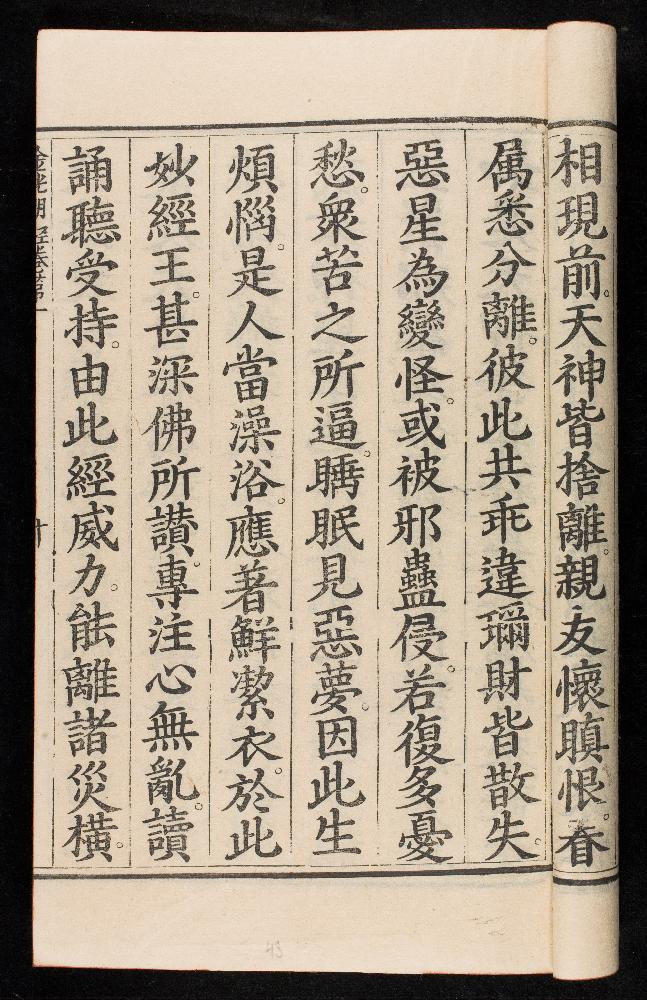 相現前。天神皆捨離。親友懷瞋恨。眷
属悉分離。彼此共乖違珎財皆散失。
惡星為變怪。或被邪蠱侵。若復多憂
愁。衆苦之所逼。睡眠見惡夢。因此生
煩惱。是人當澡浴。應著鮮潔衣。於此
妙經王。甚深佛所讃。專注心無亂。讀
誦聽受持。由此經威力。能離諸災橫。
十
43